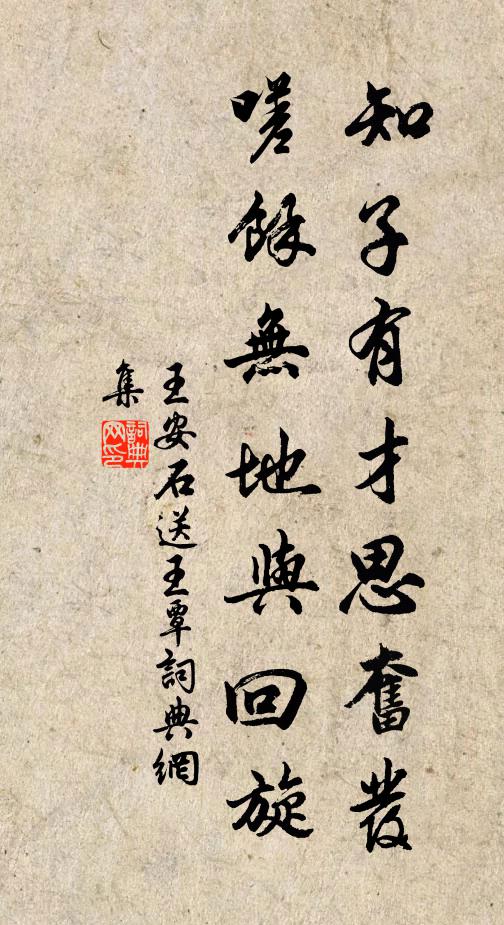 知子有才思奮發
嗟餘無地與回旋
王安石送王覃詞典網
集
詞典
网印